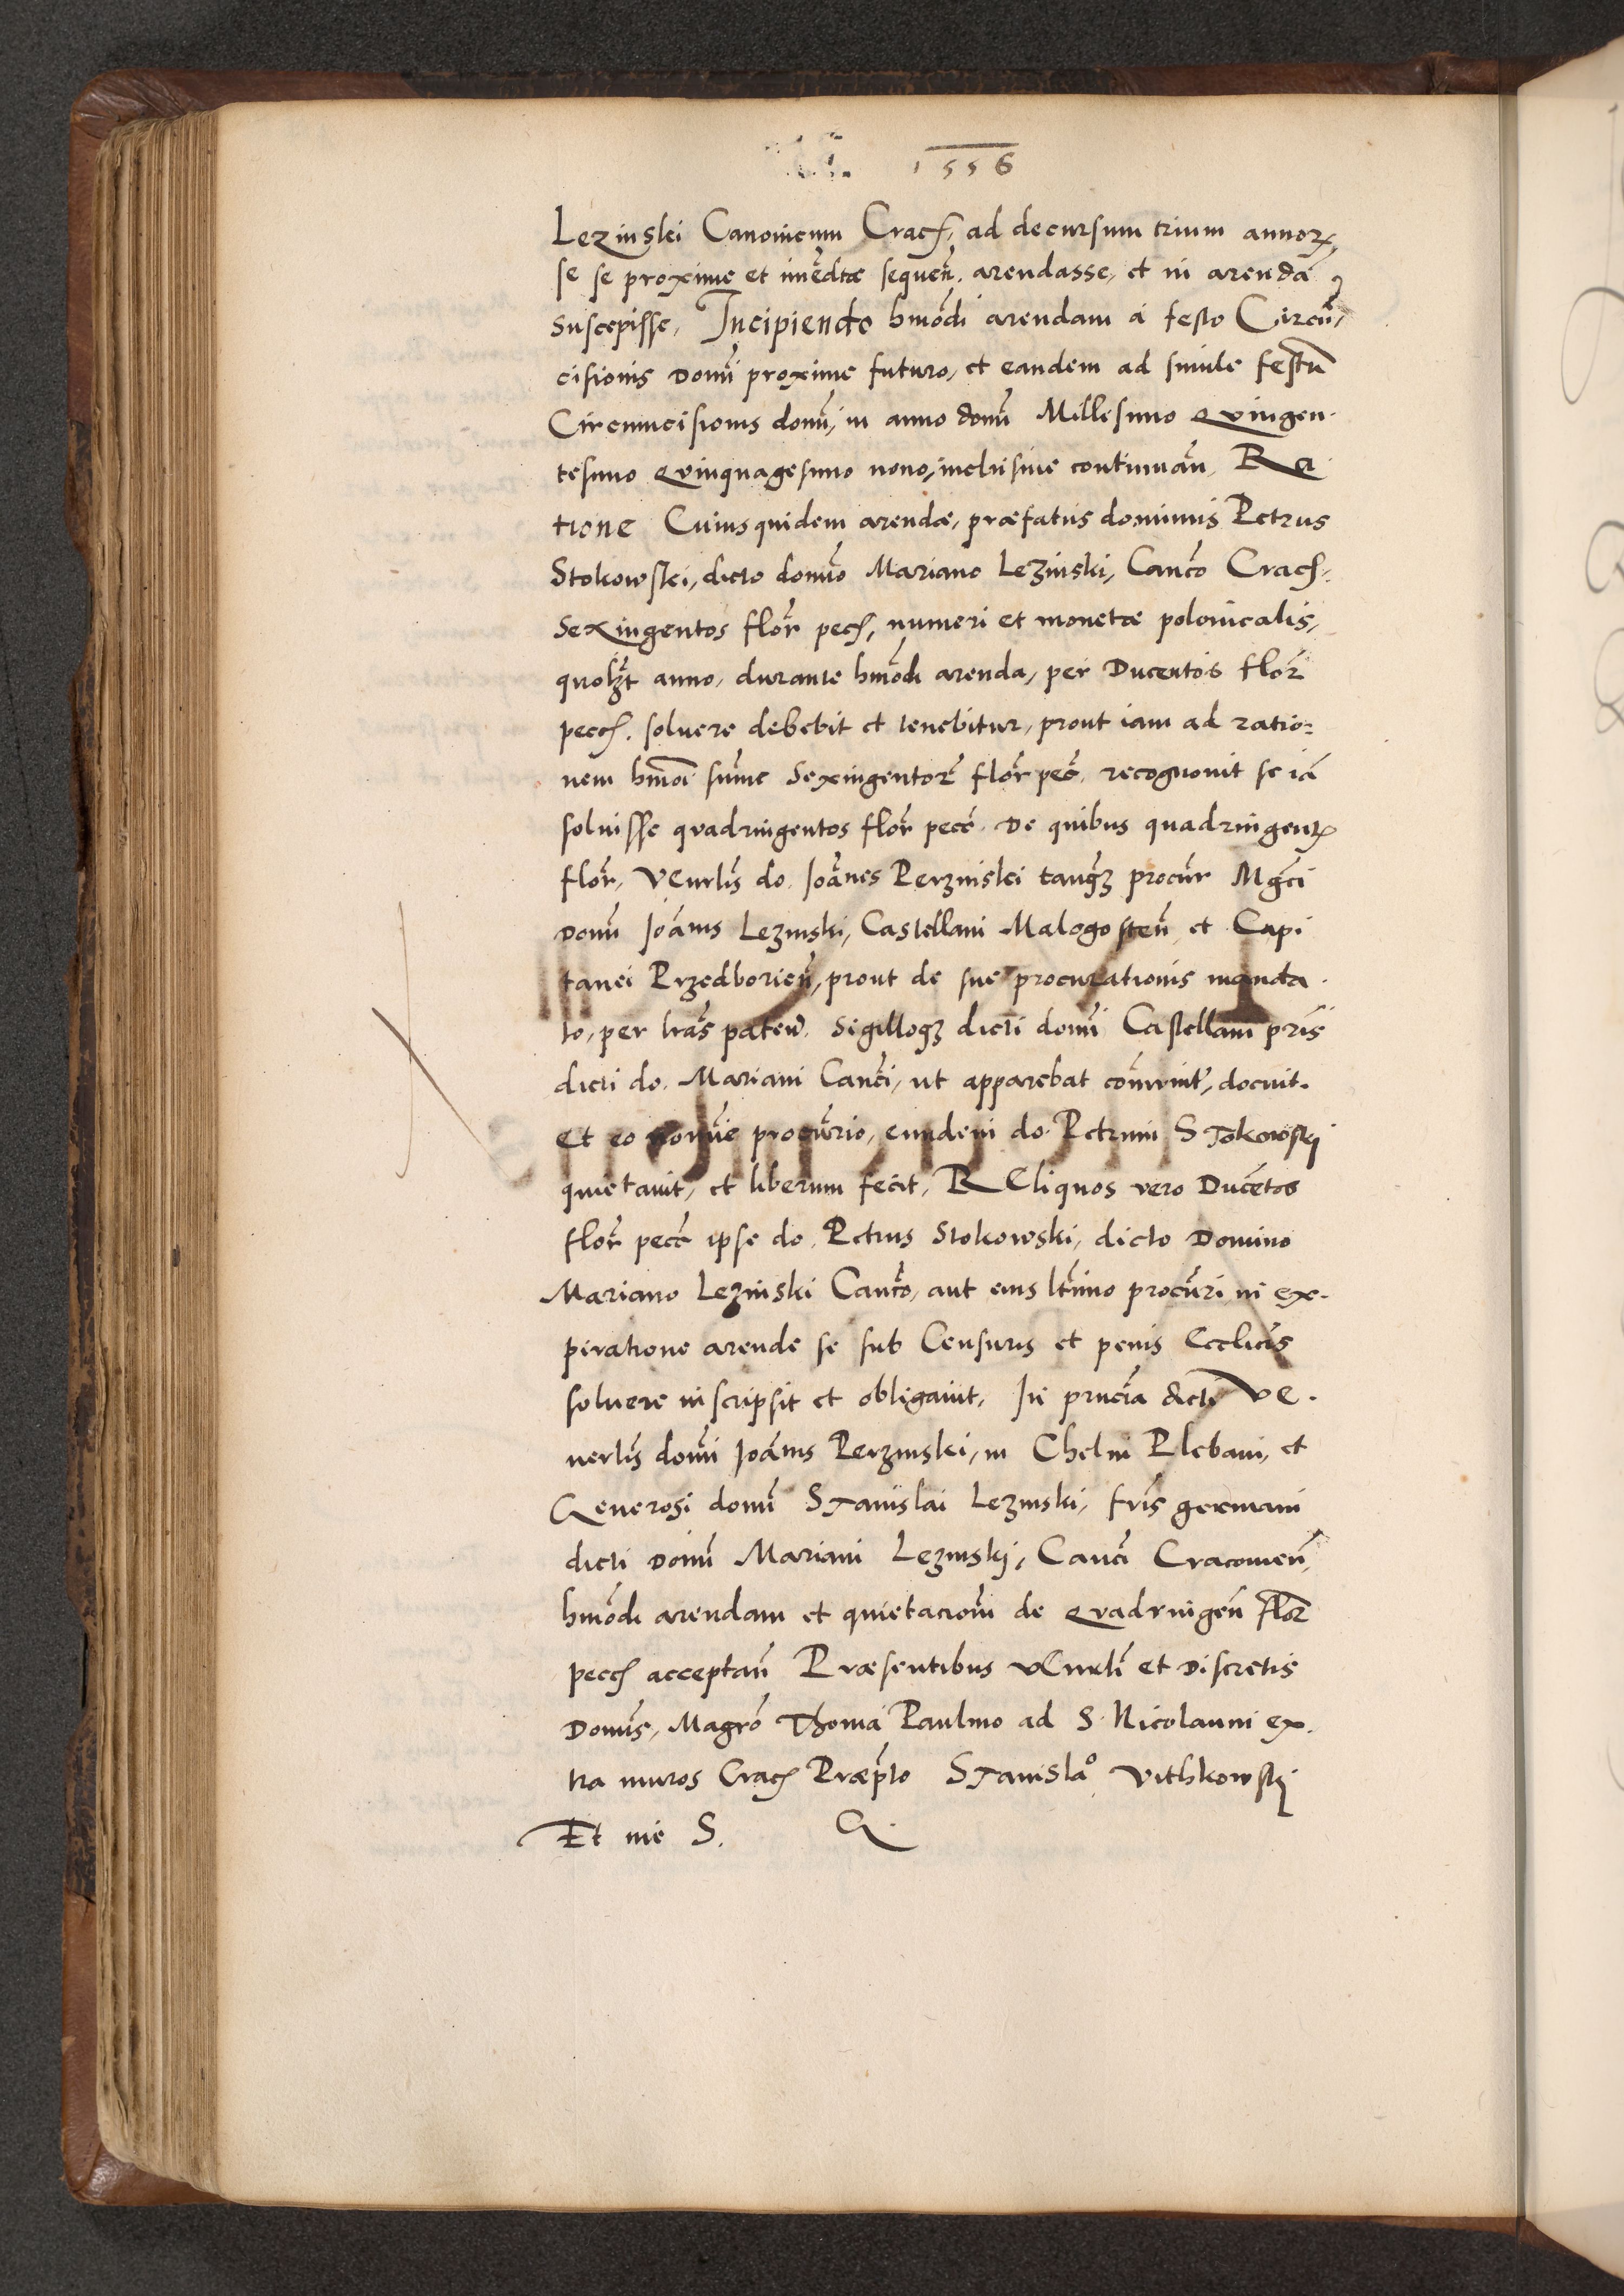 1556
Lezinski Canonicum Crac̄, ad decursum trium annorꝝ
se se proxime et im̄edtæ sequeñ. arendasse, et in arendā
suscepisse, Incipiendo hmōdi arendam a festo Circū,
cisionis Domī proxime futuro, et eandem ad simile festū
Circumcisionis domī, in anno domī Millesimo Quingen.
tesimo Quinquagesimo nono, inclusive continuañ, Ra
tione Cuiusquidem arendæ, præfatus dominus Petrus
Stokowski, dicto domīo Mariano Lezinski, Canc̄o Crac̄.
Sexingentos flor̄ pec̄, numeri et monetæ polonicalis,
quolꝫt anno, durante hmōdi arenda, per Ducentos flor̄
pecc̄. solvere debebit et tenebitur, prout iam ad ratio=
nem hmōi sum̄e Sexingentor̄ flor̄ pec̄. recognovit se iā
solvisse quadringentos flor̄ pecc̄. De quibus quadringentꝝ
flor̄, Venrl̄is do. Joān̄es Perzinski tanqꝫ procūr Mgc̄i
Domī Joānis Lezinski, Castellani Malogosteñ, et Capi
tanei Przedborieñ, prout de sue procurationis manda.
to, per lrās pateñ. Sigilloqꝫ dicti domī Castellani pr̄is
dicti do. Mariani Canc̄i, ut apparebat com̄unit̄, docuit.
Et eo nomīe procūrio, eundem do. Petrum Stokowski
quietavit, et liberum fecit, Reliquos vero Ducētos
flor̄ pecc̄ ipse do. Petrus Stokowski, dicto Domino
Mariano Lezinski Canc̄o, aut eius ltīmo procūri, in ex.
piratione arende se sub Censuris et penis Eccl̄icis
solvere inscripsit et obligavit, In prn̄cia dicti Ve.
nerl̄is domī Joānis Perzinski, in Chelm Plebani, et
Generosi domī Stanislai Lezinski, fr̄is germani
dicti Domī Mariani Lezinski, Canc̄i Cracovieñ,
hmōdi arendam et quietacioēm de Quadringeñ flor̄
pecc̄ acceptañ Præsentibus venrl̄i et Discretis
Domīs, Magrō Thoma Paulino ad S. Nicolaum ex.
tra muros Crac̄ Præp̄to Stanislao Vithkowski
Et me S. G.